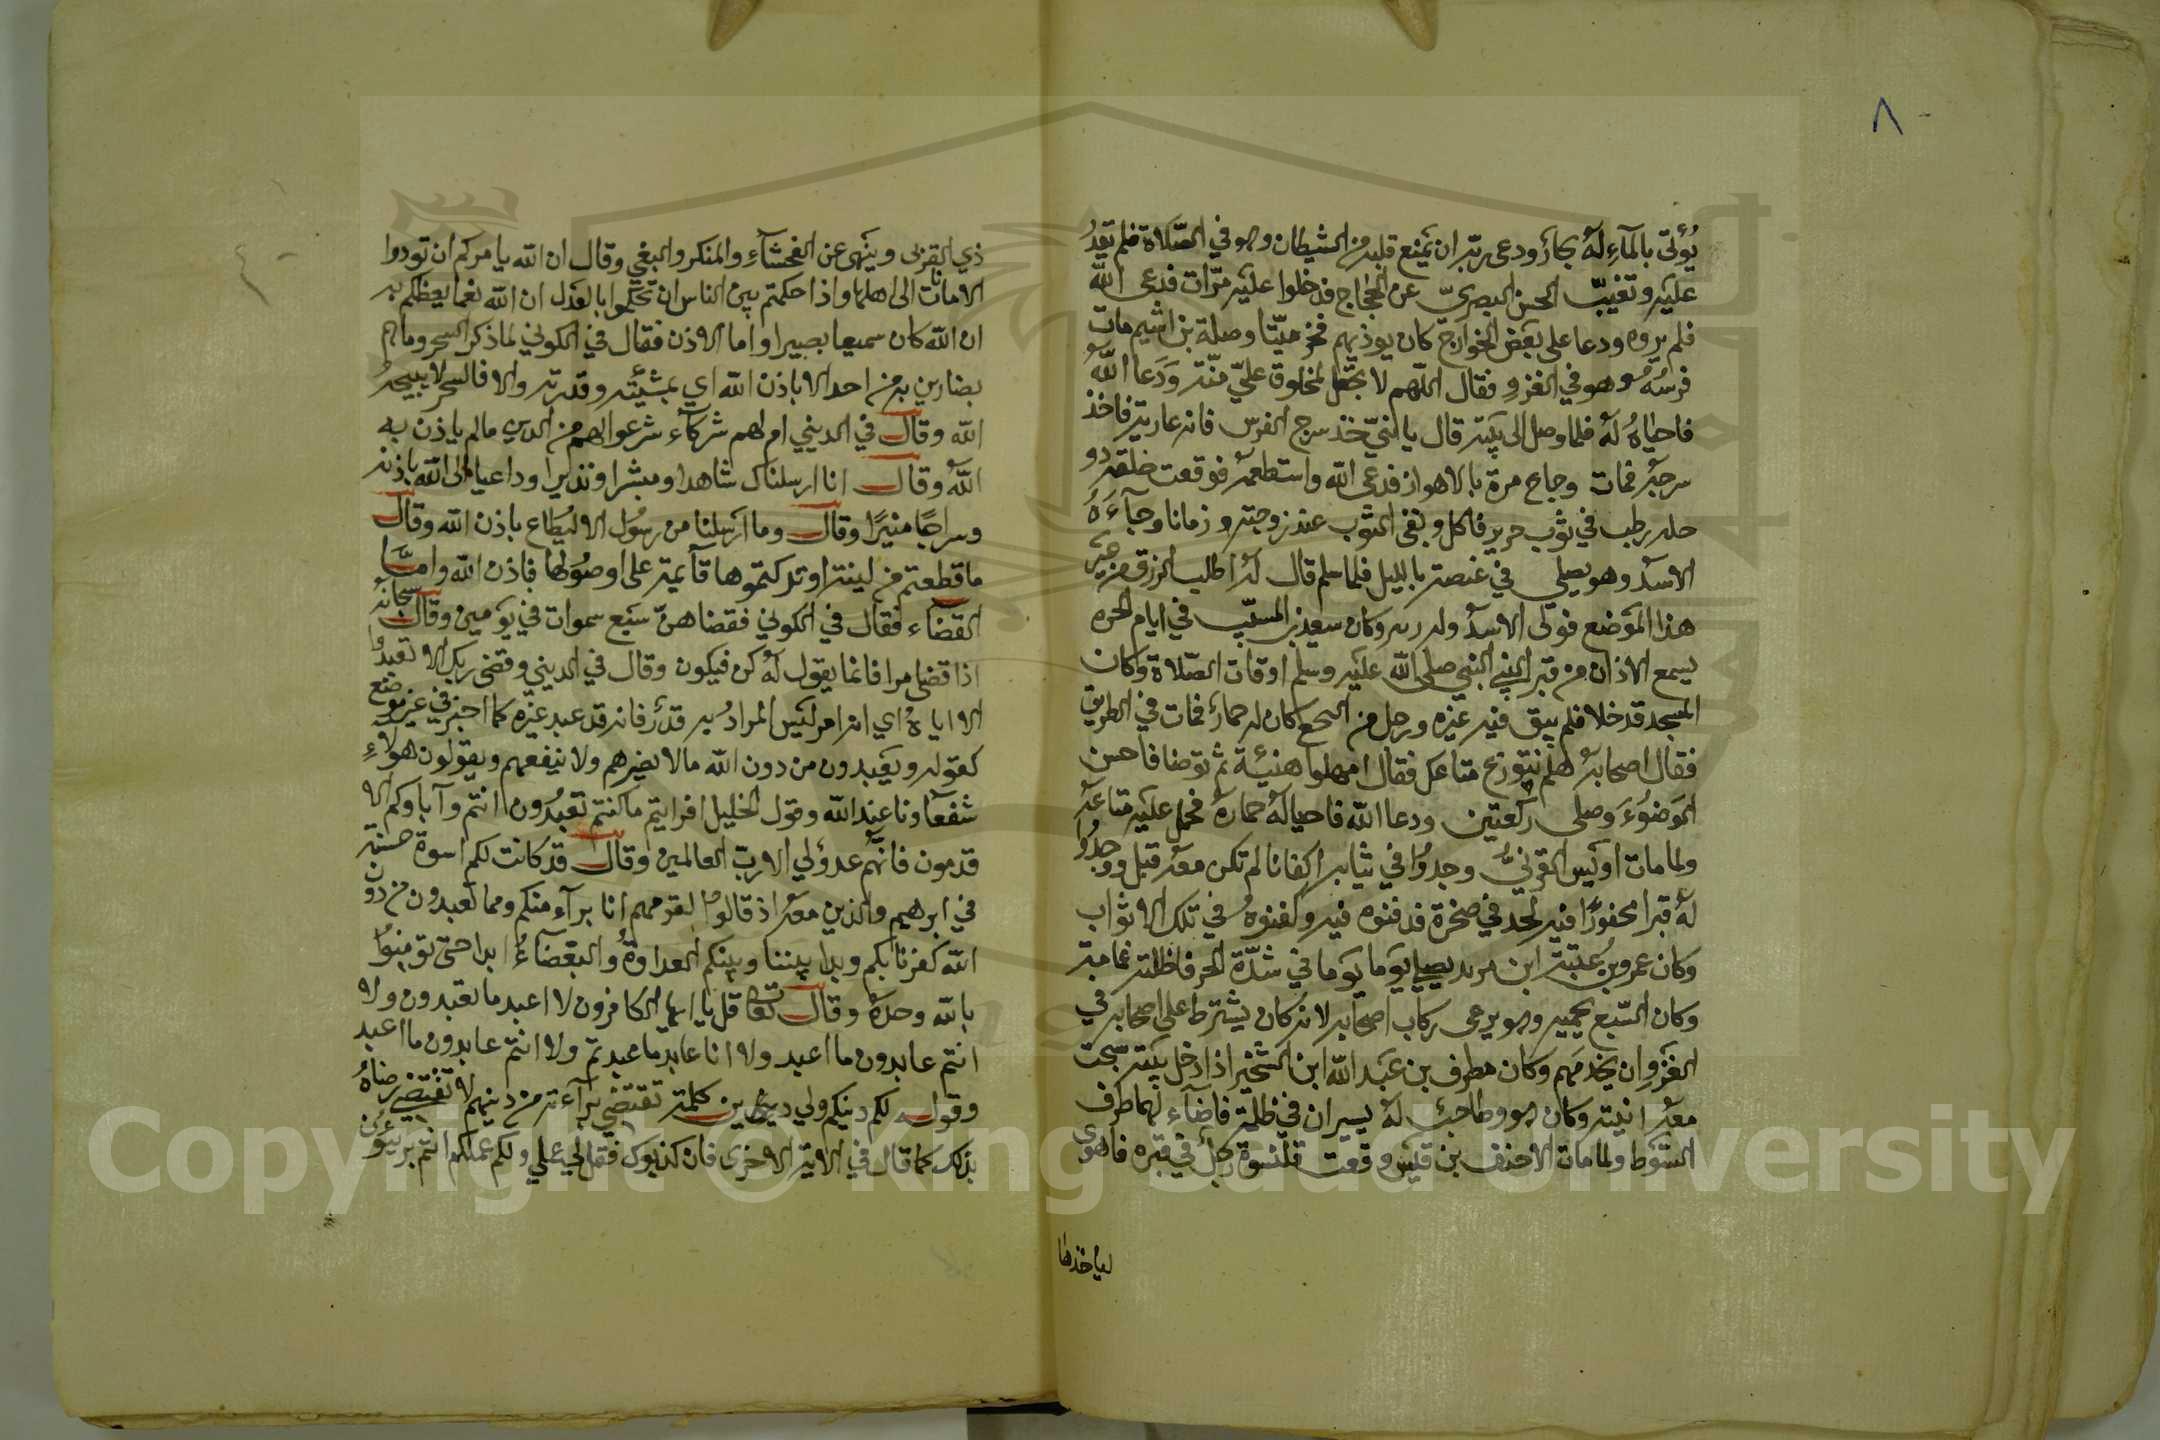 ٨
يُؤتى بالمآءِ لهُ بخارٌ ودعى ربّه ان يمنع قلبه من الشيطان وهو في الصّلاة فلم يقدُ
عليه وتغيبّ الحسن البصريّ عن الحجاج فدخلوا عليه مرّات فدعى الله
فلم يروه ودعا على بعض الخوارج كان يوذيهم فخر ميّتا وصلة بن اشيم مات
فرسُهُ وهو في الغزو فقال اللّهم لا تجعل لمخلوق عليّ منّته ودَعا اللهُ
فاحياهُ لهُ فلما وصل الى بيته قال يا بنيّ خذ سرج الفرس فانه عارية فاخذ
سرجه فمات وجاع مرة بالاهواز فدعى الله واستطعمه فوقعت خلقه دو
حله رطب في ثوب حرير فاكل وبقى الثوب عند زوجته زمانا وجآءَهُ
الاسد وهو يصلي في غيضة بالليل فلما سلم قال له اطلب الرزق من غير
هذا الموضع فولى الاسد وله زير وكان سعيد بن المسيّب في ايام الحره
يسمع الاذان من قبر النبي صلى الله عليه وسلم اوقات الصّلاة وكان
المسجد قد خلا فلم يبق فيه غيره ورجل من النخع كان له حمارٌ فمات في الطريق
فقال اصحابه هلم نتوزع متاعك فقال امهلوا هنيئة ثم توضا فاحسن
الوضوءَ وصلى ركعتين ودعا الله فاحيا لهُ حماره فحمل عليه متاعه
ولما مات اويس القرنيُّ وجدوا في ثيابه اكفانا لم تكن معه قبل ووجدُوا
لهُ قبرا محفورًا فيه لحد في صخرة فدفنوه فيه وكفنوهُ في تلك الاثواب
وكان عمرو بن عتبة ابن يصلي يوما يوما في شدّة الحر فاظلته غمامة
وكان السّبع يحميه وهو يرعى ركاب اصحابه لانه كان يشترط على اصحابه في
الغزو ان يخدمهم وكان مطرف بن عبد الله ابن الشخير اذا دخل بيته سبحت
معه انيته وكان هو وصاحب لهُ يسيران في ظلمة فاضآء لهما طرف
السَّوط ولما مات الاحنف بن قيس وقعت قلنسوة رجل في قبره فاهوى
لياخذها
ذي القربى وينهى عن الفحشآءِ والمنكر والبغي وقال ان الله يامركم ان تودوا
الامانات الى اهلها واذا حكمتم بين الناس ان تحكموا بالعدل ان الله نعما يعظكم به
ان الله كان سميعا بصيرا واما الاذن فقال في الكوني لما ذكر السحر وما هم
بضارين به من احد الا باذن الله اي بمشيئته وقدرته والا فالسحر لا يبيحهُ
الله وقال في الديني ام لهم شركآء شرعوا لهم من الدين مالم ياذن به
اللهُ وقال انا ارسلناك شاهدا ومبشرا ونذيرا وداعيا الى الله باذنه
وسراجًا منيرًا وقال وما ارسلنا من رسُول الا ليُطاع باذن الله وقال
ما قطعتم من لينة او تركتموها قآيمة على اوصُولها فباذن الله وامَّا
القضآء فقال في الكوني فقضاهنّ سَبع سموات في يومين وقال سبحانه
اذا قضى امرا فانما يقول لهُ كن فيكون وقال في الديني وقضى ربك الا تعبدُوا
الا اياهُ اي امر ليس المرادُ به قدّر فانه قد عبد غيره كما اخبر في غير موضع
كقوله ويعبدون من دون الله مالا يضرهم ولا ينفعهم ويقولون هولاءِ
شفعآونا عند الله وقول الخليل افرايتم ما كنتم تعبُدُون انتم وآباوكم الا
قدمون فانّهم عدوّ لي الا ربّ العالمين وقال قد كانت لكم اسوة حسنة
في ابرهيم والذين معه اذ قالوا لقومهم انا برآء منكم ومما تعبدون من دون
الله كفرنا بكم وبدا بيننا وبينكم العداوةُ والبغضآءُ ابدا حتى تومنوا
بالله وحدهُ وقال تعا قل يا ايها الكافرون لا اعبد ما تعبدون ولا
انتم عابدون ما اعبد ولا انا عابد ما عبدتم ولا انتم عابدون ما اعبد
وقوله لكم دينكم ولي دين كلمة تقتضي برآءته من دينهم لا تقتضي رضاهُ
بذلك كما قال في الاية الاخرى فان كذبوك فقل لي عملي ولكم عملكم انتم بريئون
Copyright © King Saud University